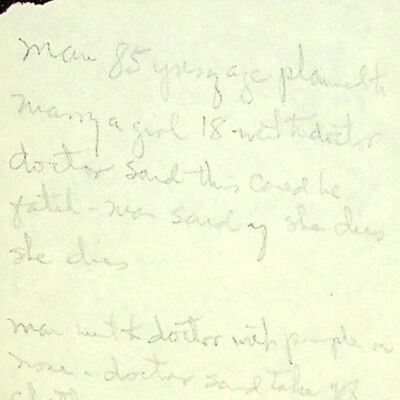 Man 85 yrs of age planned to
marry a girl 18 - went to doctor
doctor said - this could be
fatal - man said if she dies
she dies
man went to doctor with pimple on
nose - doctor said take off